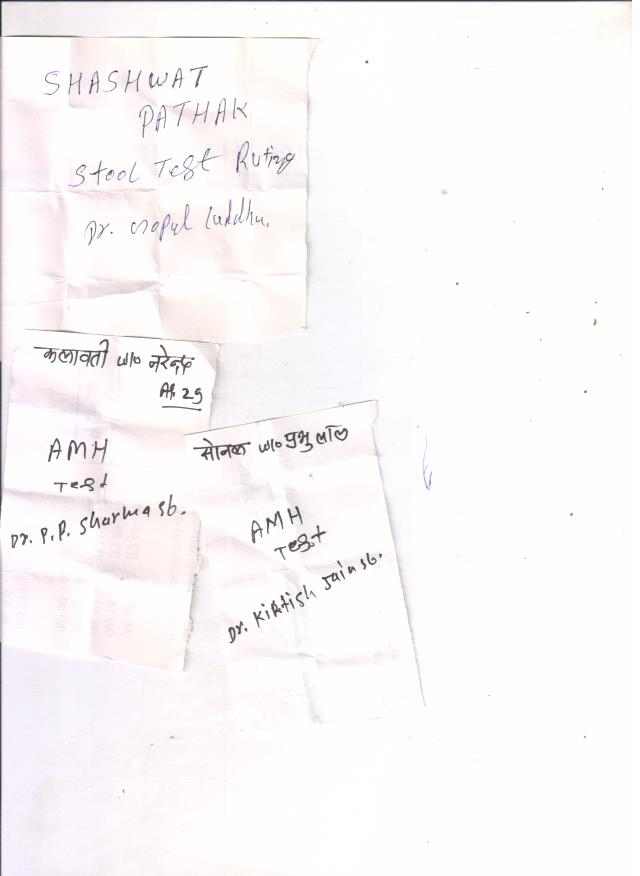 SHASHWAT
PATHAK
Stool Test Ruting
Dr. Gopal Luddhu.
कलावती w/o नरेन्द्र
A. 29
AMH
Test
Dr. P.P. Sharma sb.
सोनल w/o प्रभु लाल
AMH
Test
Dr. Kirtish Jain sb.